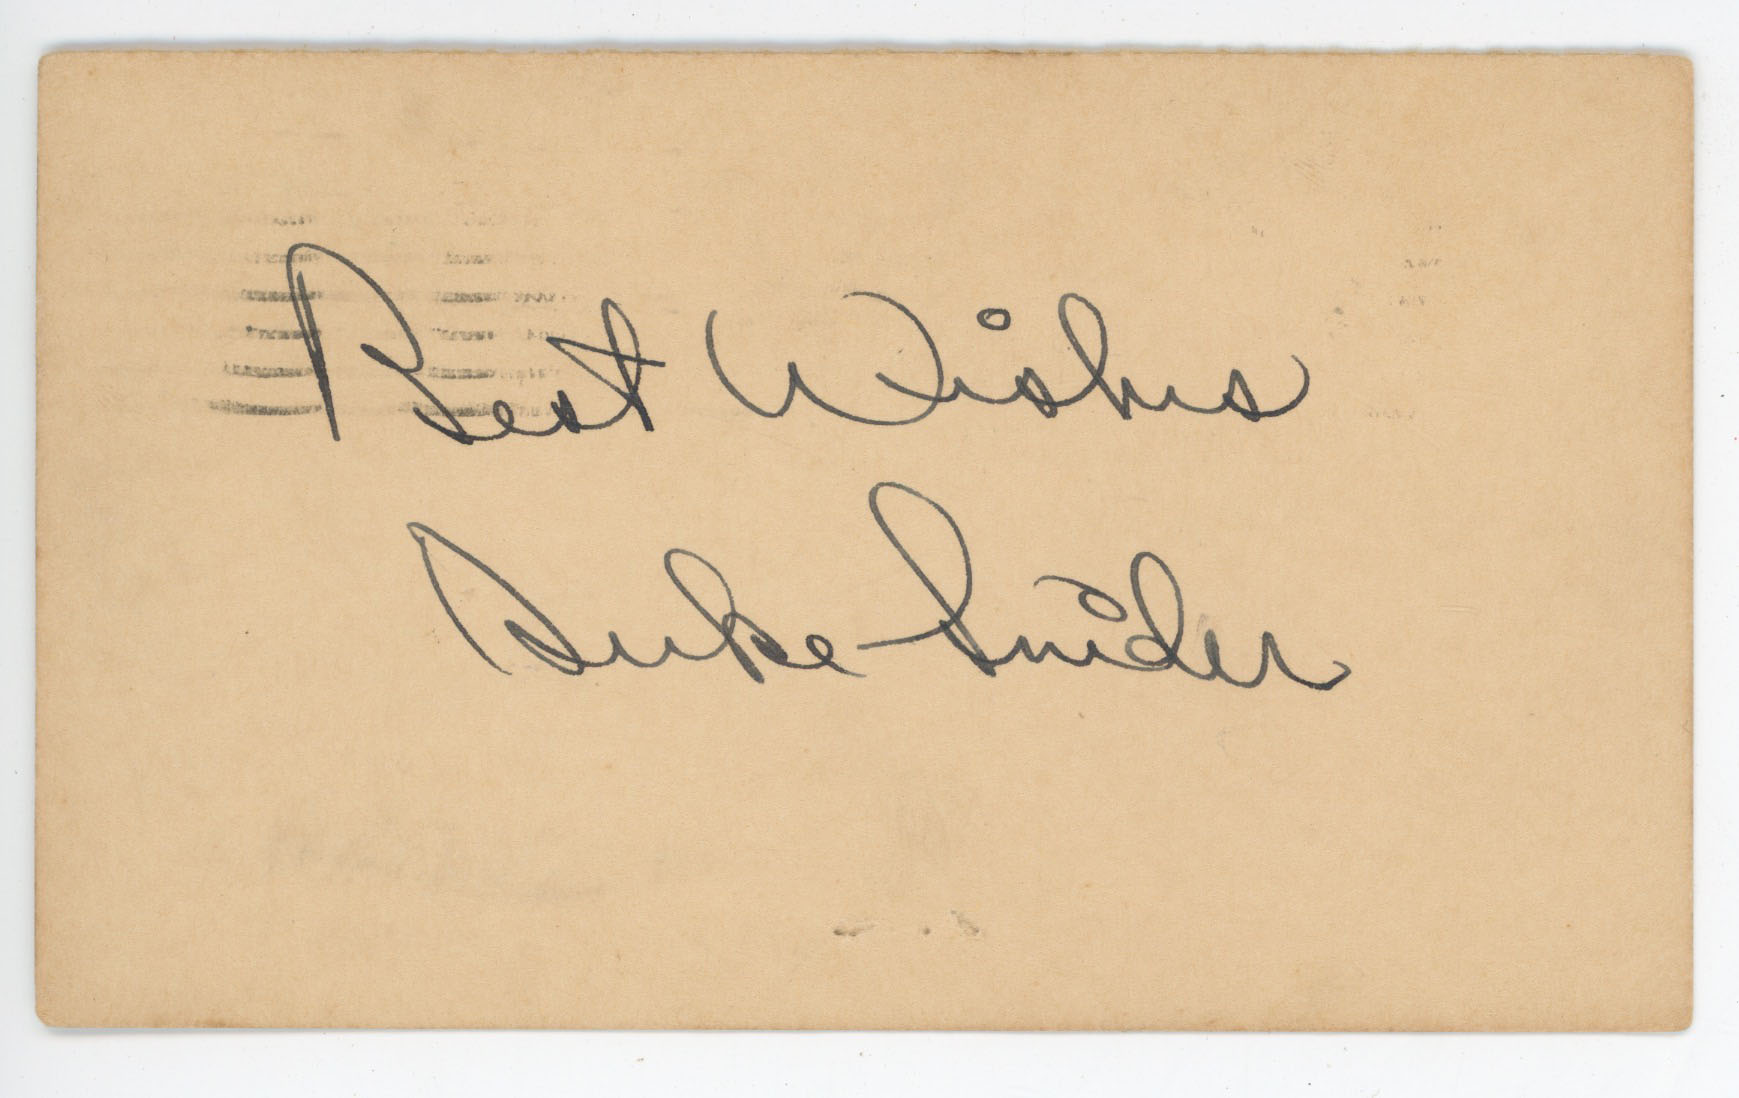 Best Wishes
Duke Snider